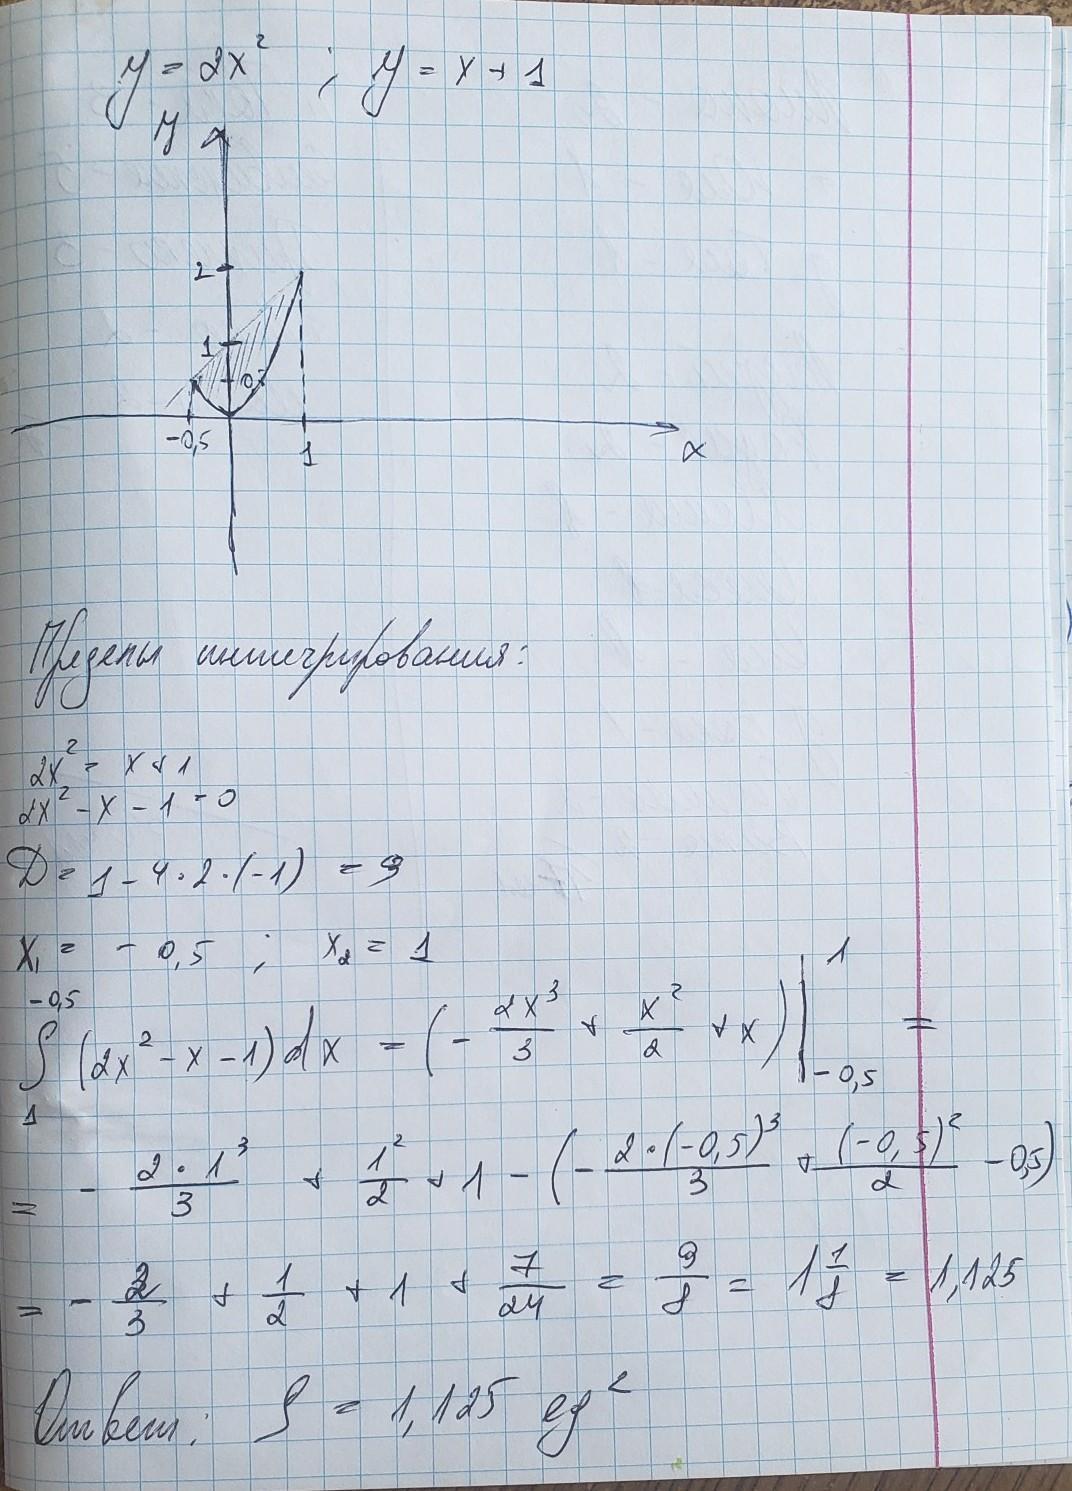 y = 2x² ; y = x + 1
y
2
1
0,5
-0,5
1
x
Пределы интегрирования:
2x² = x + 1
2x² - x - 1 = 0
D = 1 - 4·2·(-1) = 9
x₁ = -0,5 ; x₂ = 1
∫₁^(-0,5) (2x² - x - 1)dx = (-2x³/3 + x²/2 + x)|₋₀,₅¹ =
= - 2·1³/3 + 1²/2 + 1 - (- 2·(-0,5)³/3 + (-0,5)²/2 - 0,5)
= - 2/3 + 1/2 + 1 + 7/24 = 9/8 = 1 1/8 = 1,125
Ответ: S = 1,125 ед²